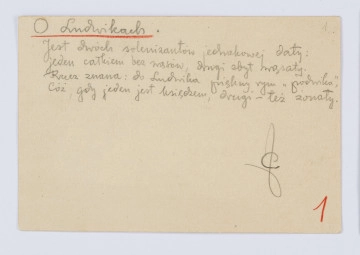 O Ludwikach.
Jest dwóch solenizantów jednakowej daty:
jeden całkiem bez wąsów, drugi zbyt wąsaty.
Rzecz znana: do Ludwika piękny rym „podwika”,
Cóż, gdy jeden jest księdzem, drugi – też żonaty.
1